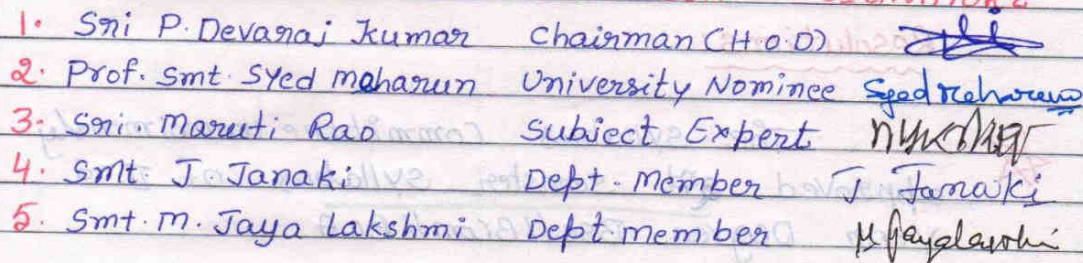 1. Sri P. Devaraj Kumar Chairman (H.O.D)
2. Prof. Smt. Syed meharun University Nominee Syed Meharun
3. Sri. Maruti Rao Subject Expert
4. Smt. J. Janaki Dept. Member J. Janaki
5. Smt. M. Jaya Lakshmi Dept. member M Jayalakshmi